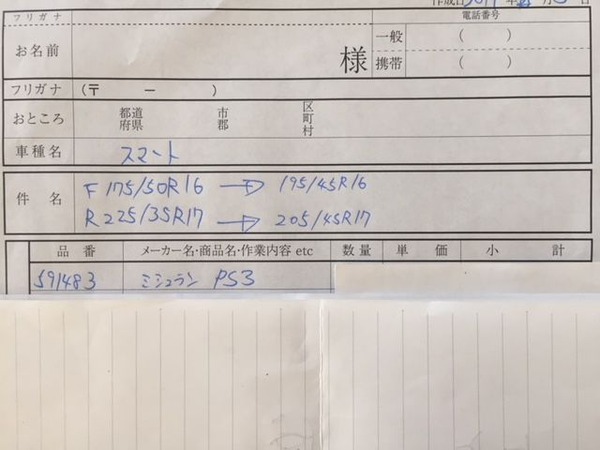 作成日 2017 年 月 日
フリガナ 電話番号
お名前 様 一般 ( )
携帯 ( )
フリガナ (〒 ー )
おところ 都道府県 市郡 区町村
車種名 スマート
件 名 F 175/50R16 → 195/45R16
R 225/35R17 → 205/45R17
品 番 メーカー名・商品名・作業内容 etc 数 量 単 価 小 計
591483 ミシュラン PS3